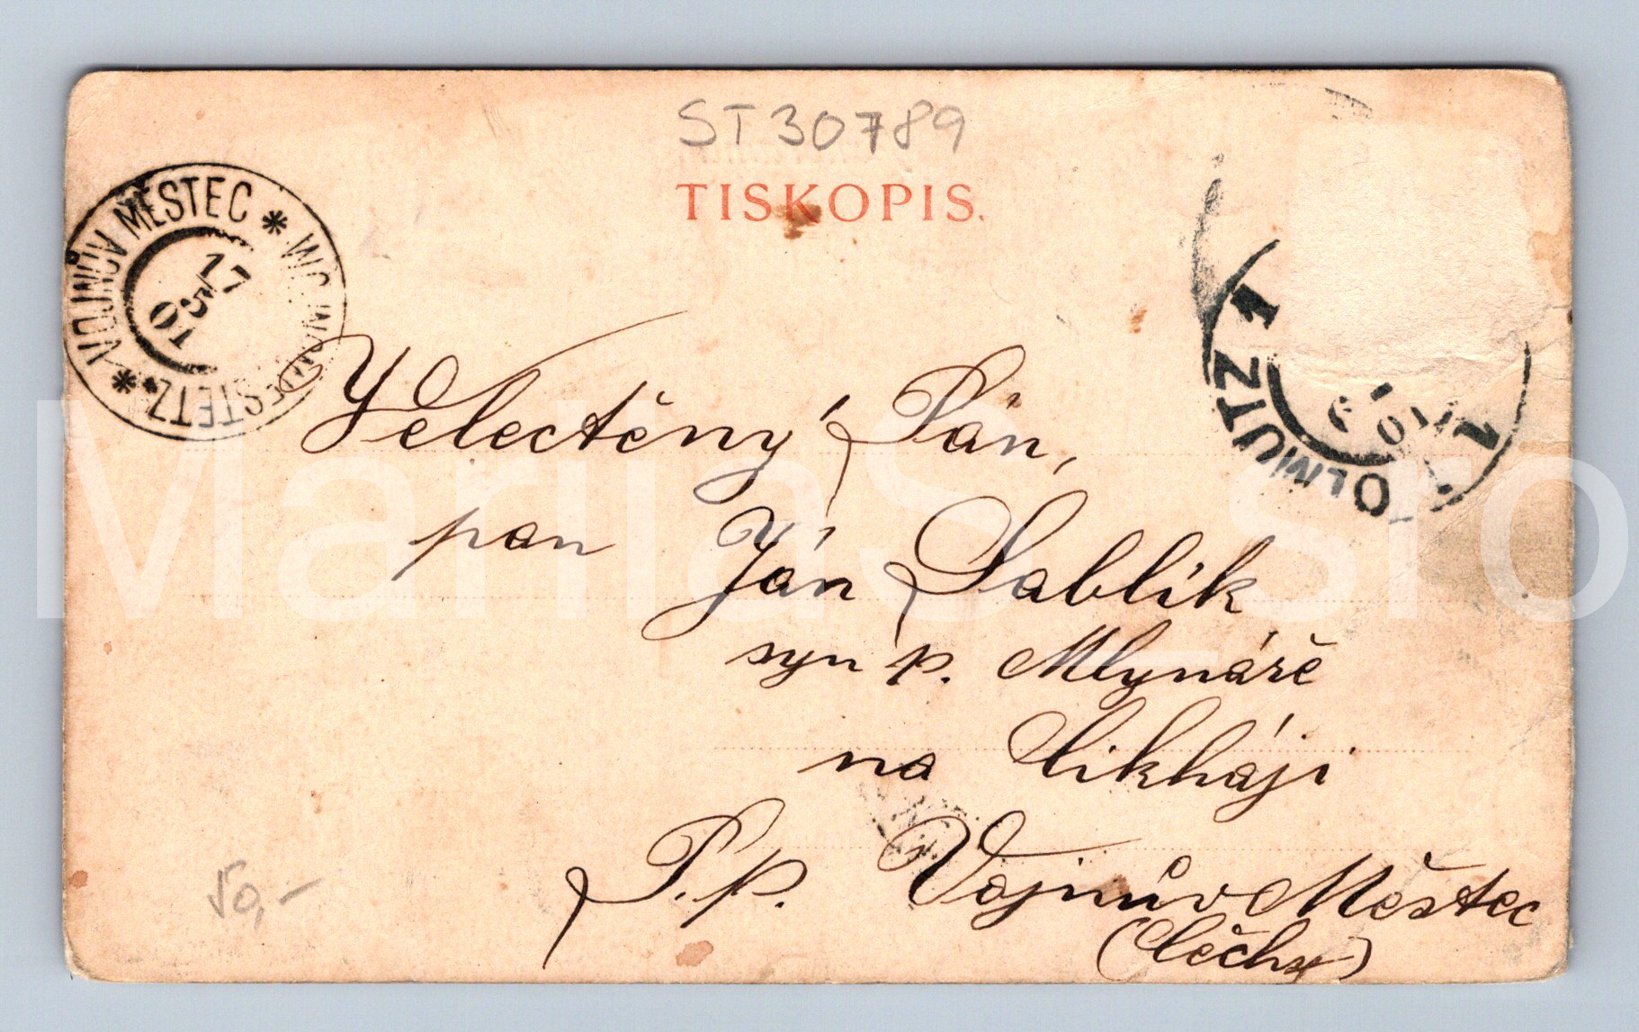 ST30789
TISKOPIS.
VOJNŮV MĚSTEC
17
5
01
OLMÜTZ 1
Velectěný Pán,
pan Ján Sablík
syn p. Mlynáře
na Cikháji
P.p. Vojnův Městec
(Čechy)
50,-